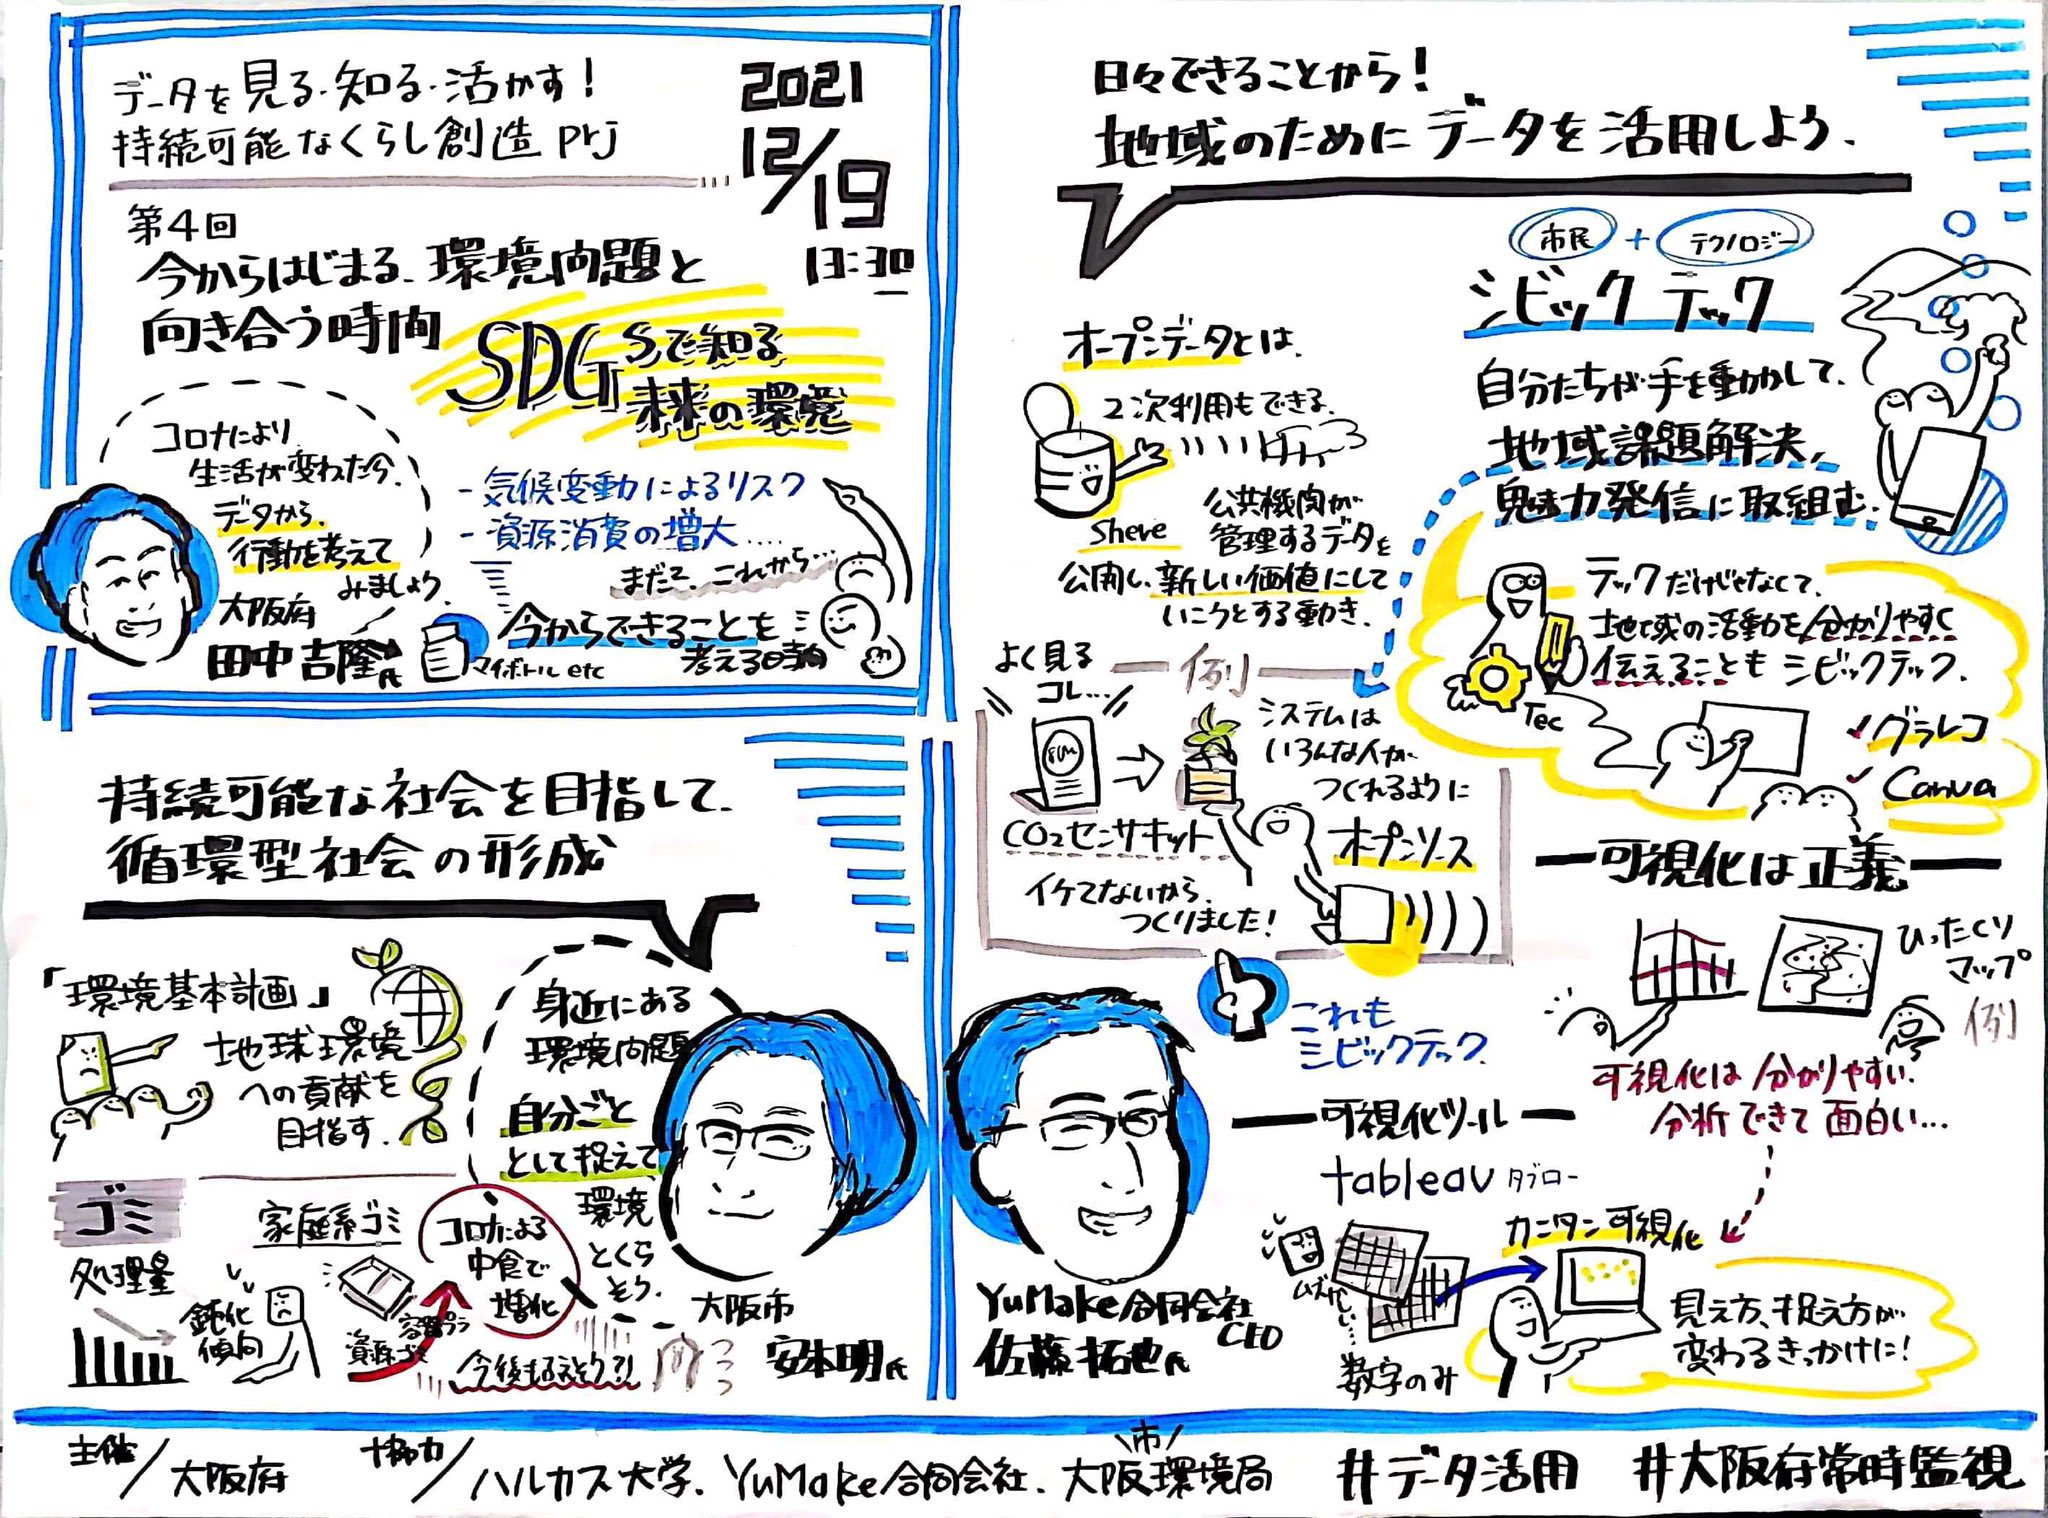 データを見る・知る・活かす!
持続可能なくらし創造 prj
2021
12/19
13:30
第4回
今からはじまる、環境問題と
向き合う時間
SDGsで知る
未来の環境
コロナにより
生活が変わった今、
データから、
行動を考えて
みましょう
大阪府
田中吉隆氏
- 気候変動によるリスク
- 資源消費の増大....
まだまだ、これから…
今からできることを
考える時間
マイボトル etc
持続可能な社会を目指して、
循環型社会の形成
「環境基本計画」
地球環境
への貢献を
目指す
身近にある
環境問題
自分ごと
として捉えて
環境、
とくら
そう。
大阪市
安本明氏
ゴミ
処理量
鈍化
傾向
家庭系ゴミ
資源ゴミ
容器プラ
コロナによる
中食で
増化
今後もふえそう?!
日々できることから!
地域のためにデータを活用しよう。
オープンデータとは、
2次利用もできる。
Sheve
公共機関が
管理するデータを
公開し、新しい価値にして
いこうとする動き。
市民 + テクノロジー
シビックテック
自分たちが手を動かして、
地域課題解決、
魅力発信に取組む。
テックだけじゃなくて、
地域の活動を分かりやすく
伝えることもシビックテック。
Tec
✓グラレコ
✓Canva
例
よく見る
コレ...
CO2センサキット
イケてないから、
つくりました!
システムは
いろんな人が
つくれるように
オープンソース
これも
シビックテック
YuMake合同会社
CEO
佐藤拓也氏
可視化は正義
ひったくり
マップ
例
可視化は分かりやすい、
分析できて面白い…
可視化ツール
tableau タブロー
ムズかしい…
数字のみ
カンタン可視化
見え方、捉え方が
変わるきっかけに!
主催/大阪府
協力/ハルカス大学、YuMake合同会社、大阪市環境局
#データ活用 #大阪府常時監視